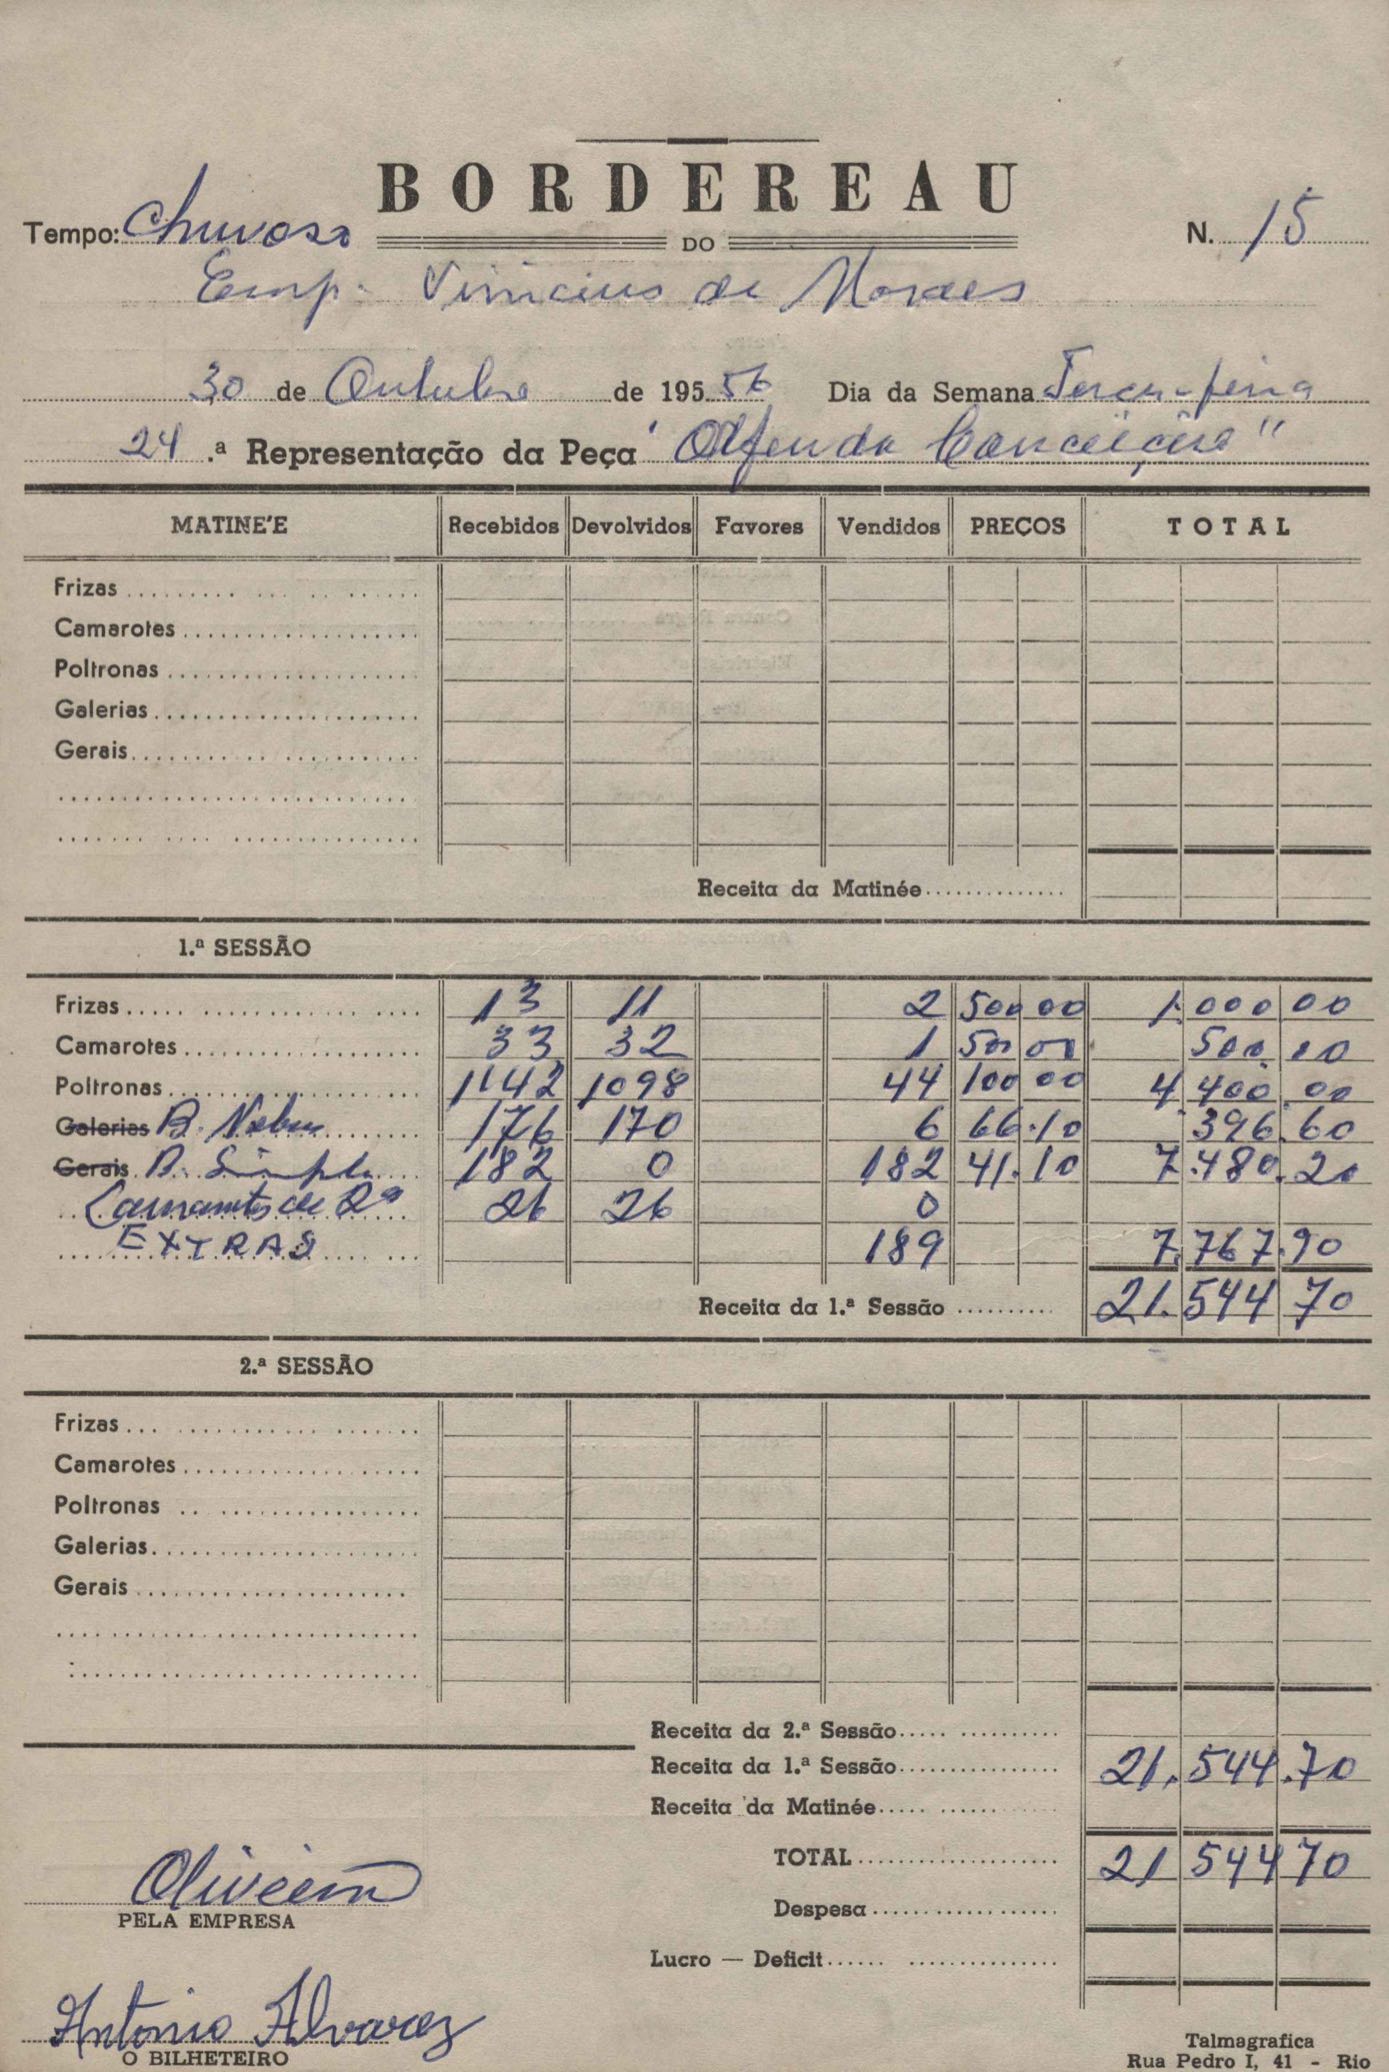 BORDEREAU
Tempo: Chuvoso DO N. 15
Emp. Vinicius de Moraes
30 de Outubro de 195 56 Dia da Semana Terça-feira
24 .ª Representação da Peça "Orfeu da Conceição"
MATINE'E Recebidos Devolvidos Favores Vendidos PREÇOS TOTAL
Frizas
Camarotes
Poltronas
Galerias
Gerais
Receita da Matinée
1.ª SESSÃO
Frizas 13 11 2 500 00 1.000 00
Camarotes 33 32 1 500 00 500.00
Poltronas 1142 1098 44 100 00 4.400.00
Galerias B. Nobre 176 170 6 66.10 396.60
Gerais B. Simples 182 0 182 41.10 7.480.20
Camarotes de 2ª 26 26 0
EXTRAS 189 7.767.90
Receita da 1.ª Sessão 21.544 70
2.ª SESSÃO
Frizas
Camarotes
Poltronas
Galerias
Gerais
Receita da 2.ª Sessão
Receita da 1.ª Sessão 21.544.70
Receita da Matinée
TOTAL 21 544 70
Despesa
Lucro — Deficit
Oliveira
PELA EMPRESA
Antonio Alvarez
O BILHETEIRO
Talmagrafica
Rua Pedro I, 41 - Rio